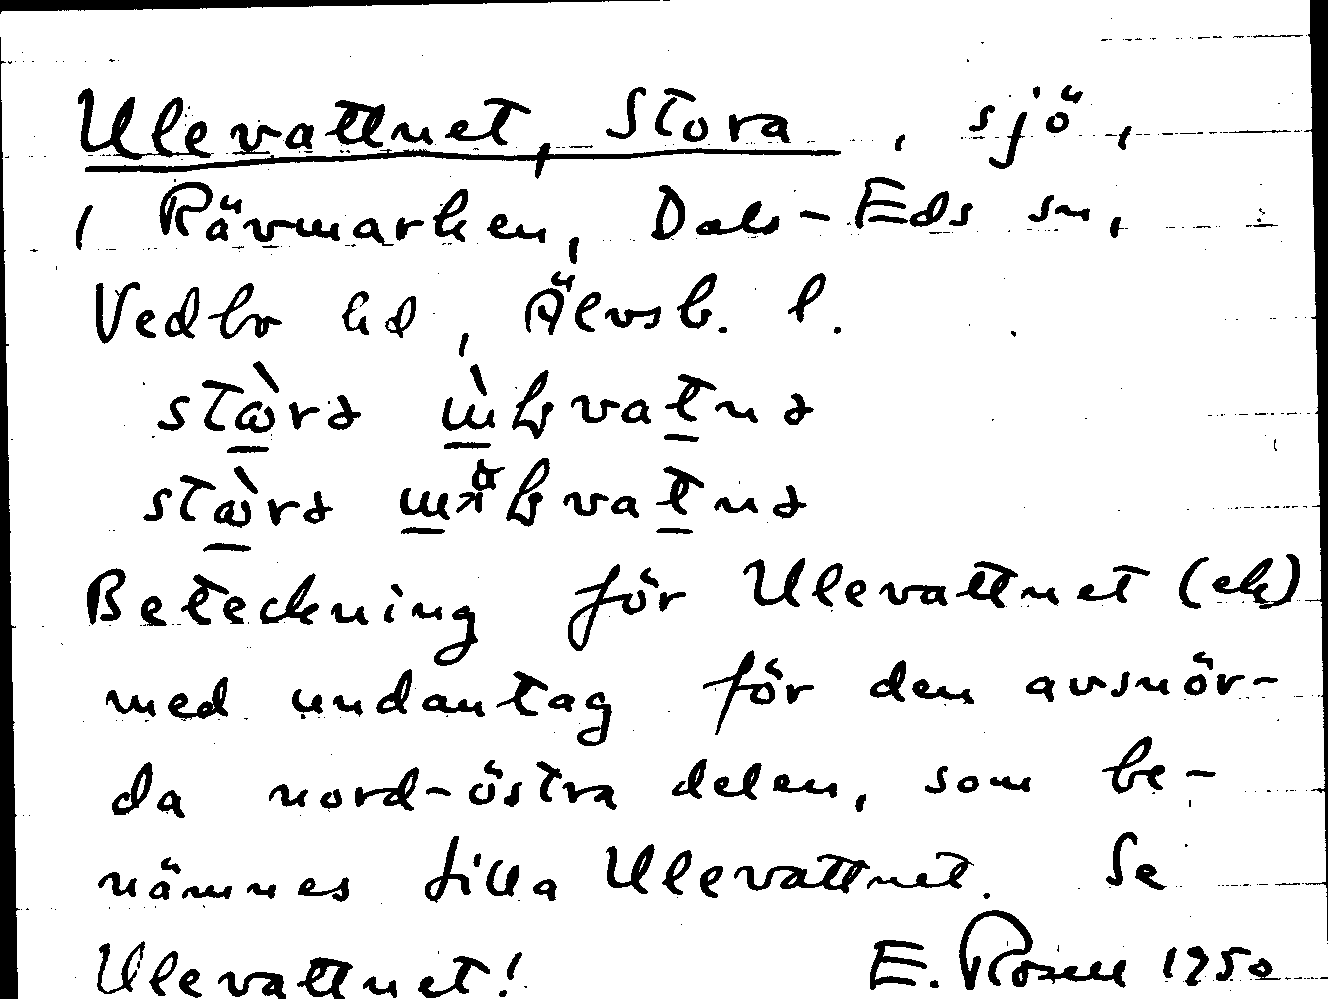 Ulevattnet, Stora, sjö,
i Rävmarken, Dals-Eds sn,
Vedbo hd, Älvsb. l.
Beteckning för Ulevattnet (ek)
med undantag för den avsnör-
da nord-östra delen, som be-
nämnes Lilla Ulevattnet. Se
Ulevattnet! E. Rosell 1950